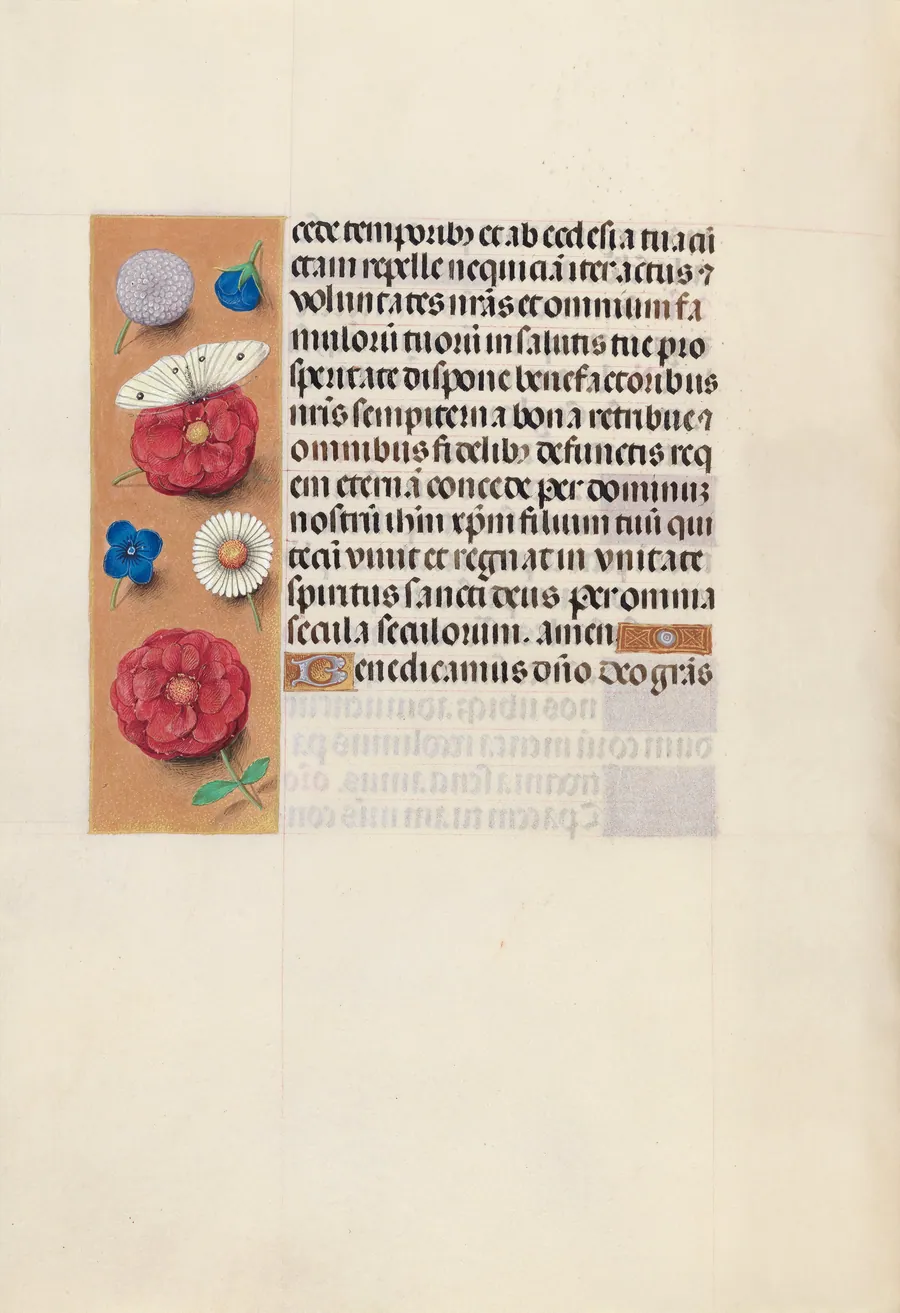 cede temporibꝫ et ab ecclesia tua cū
ctam repelle nequiciā iter actus ⁊
voluntates nr̄as et omnium fa
mulorū tuorū in salutis tue pro
speritate dispone benefactoribus
nr̄is sempiterna bona retribue ⁊
omnibus fidelibꝫ defunctis req
em eternā concede per dominuꝫ
nostrū ihm̄ xp̄m filium tuū qui
tecū viuit et regnat in vnitate
spiritus sancti deus per omnia
secula seculorum. amen
Benedicamus dn̄o deo gr̄as